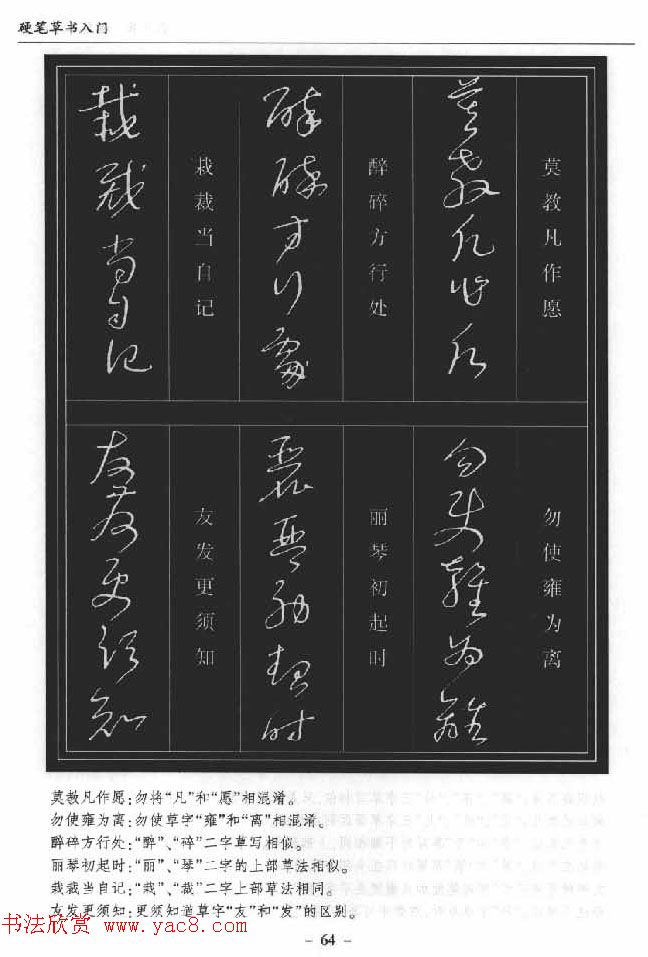 硬笔草书入门
莫教凡作愿
莫教凡作愿
勿使雍为离
勿使雍为离
醉碎方行处
醉碎方行处
丽琴初起时
丽琴初起时
栽裁当自记
栽裁当自记
友发更须知
友发更须知
莫教凡作愿:勿将“凡”和“愿”相混淆。
勿使雍为离:勿使草字“雍”和“离”相混淆。
醉碎方行处:“醉”、“碎”二字草写相似。
丽琴初起时:“丽”、“琴”二字的上部草法相似。
栽裁当自记:“栽”、“裁”二字上部草法相同。
友发更须知:更须知道草字“友”和“发”的区别。
书法欣赏 www.yac8.com
- 64 -